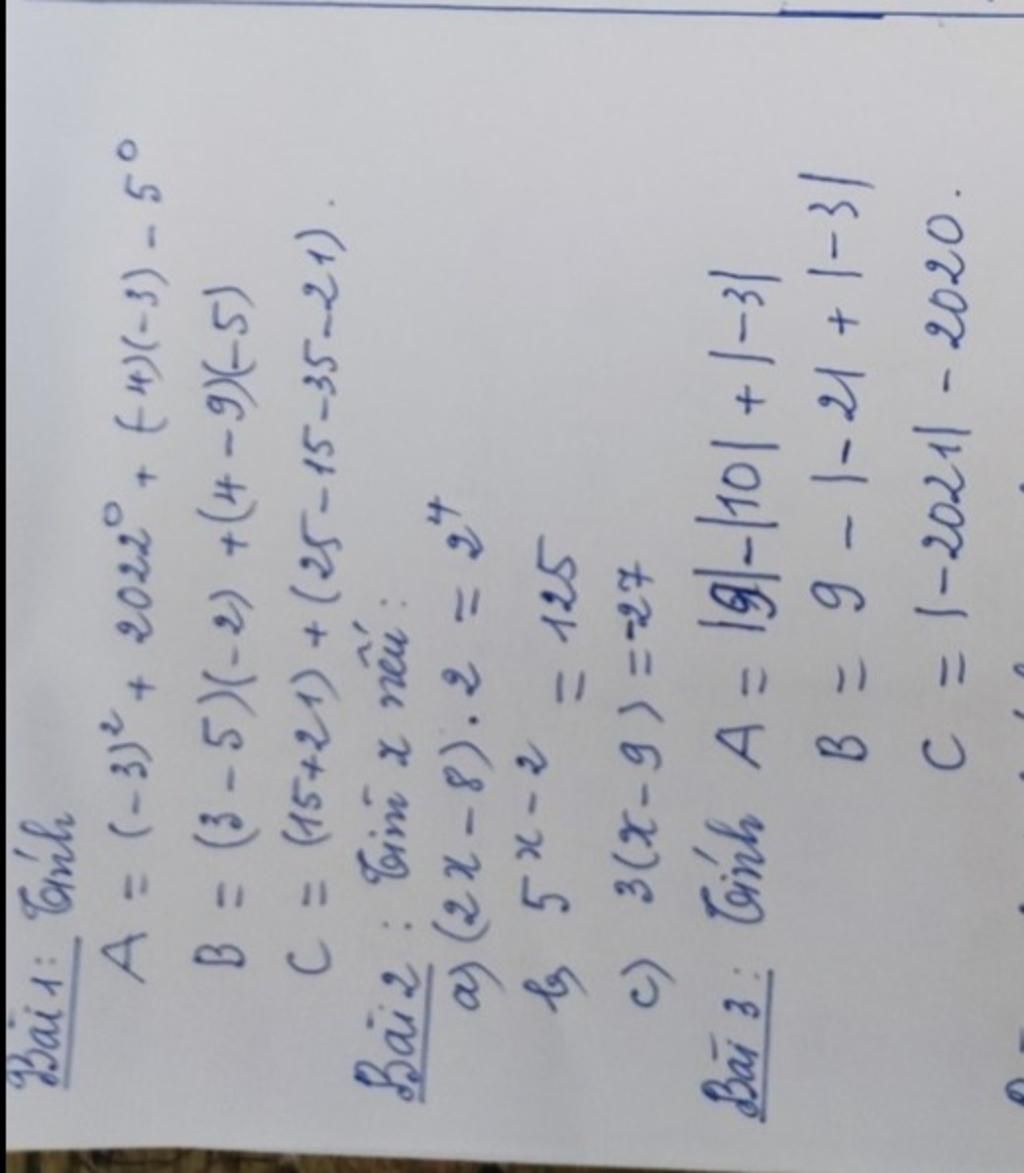 Bài 1: Tính
A = (-3)² + 2022⁰ + (-4)(-3) - 5⁰
B = (3 - 5)(-2) + (4 - 9)(-5)
C = (15+21) + (25 - 15 - 35 - 21).
Bài 2: Tìm x nếu:
a) (2x - 8) . 2 = 2⁴
b) 5ˣ⁻² = 125
c) 3(x - 9) = -27
Bài 3: Tính A = |9| - |10| + |-3|
B = 9 - |-2| + |-3|
C = |-2021| - 2020.